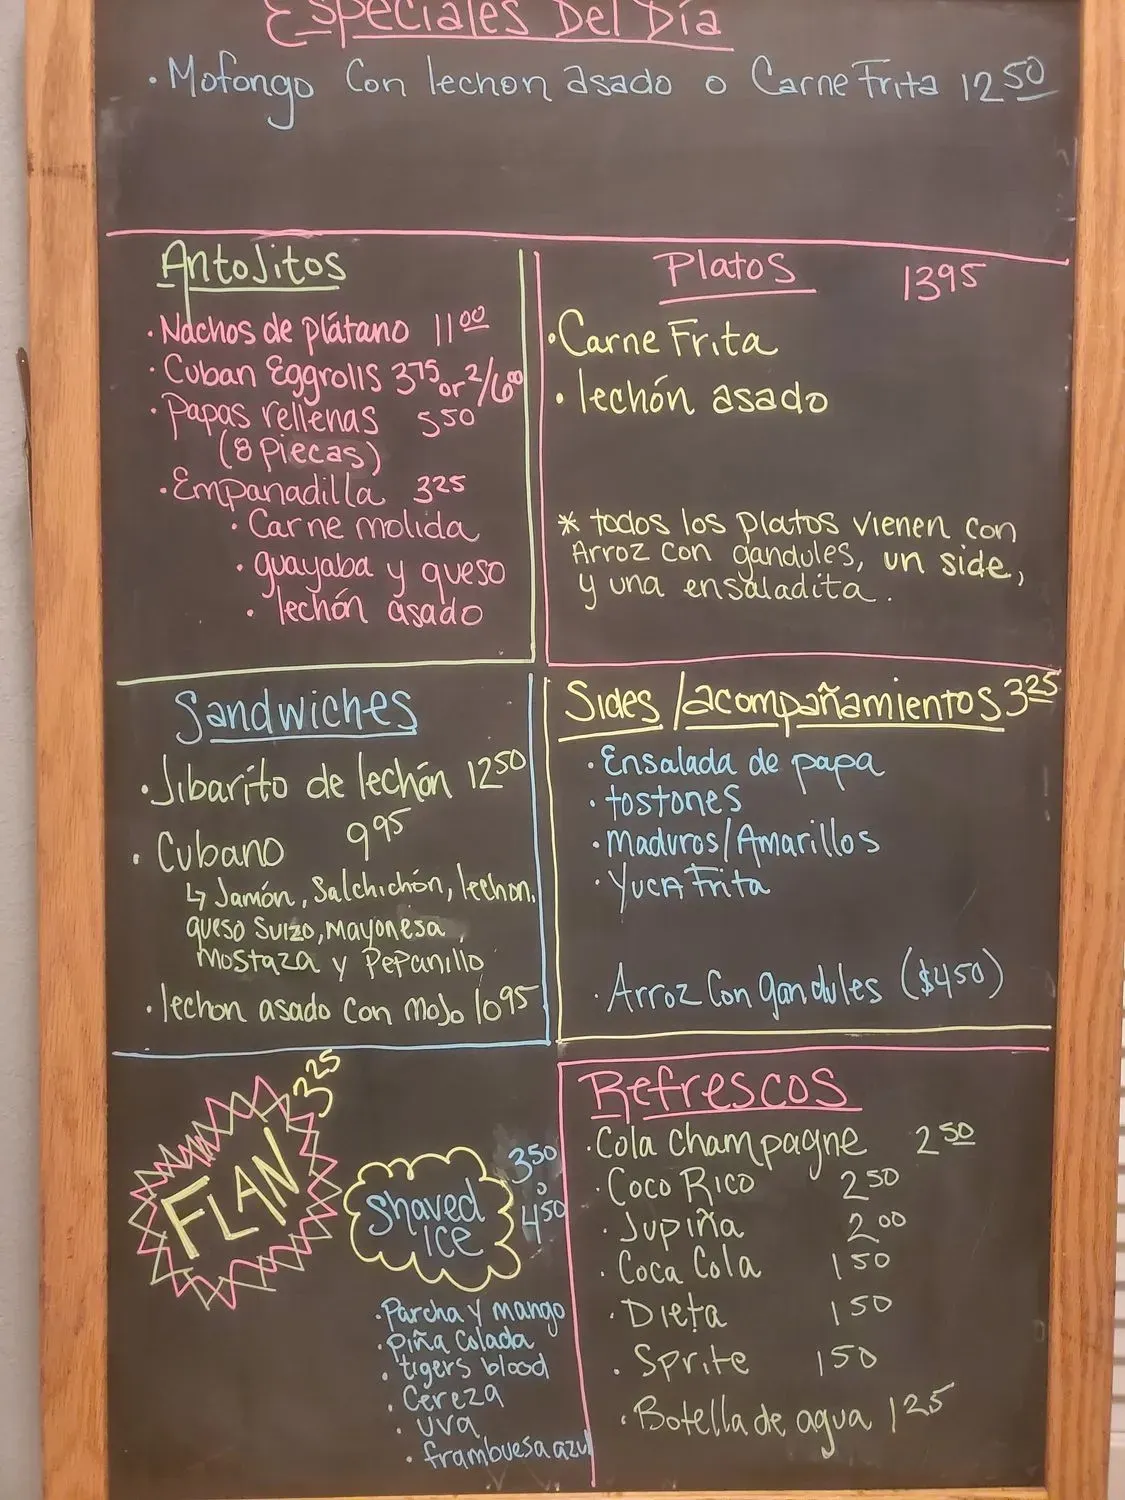 Especiales Del Día
· Mofongo Con lechon asado o Carne Frita 12 50
Antojitos
· Nachos de plátano 11 00
· Cuban Eggrolls 3 75 or 2/6 00
· Papas rellenas 5 50
(8 Piecas)
· Empanadilla 3 25
· Carne molida
· guayaba y queso
· lechón asado
Platos 13 95
· Carne Frita
· lechón asado
* todos los platos vienen con
Arroz con gandules, un side,
y una ensaladita.
Sandwiches
· Jibarito de lechón 12 50
· Cubano 9 95
↳ Jamón, Salchichón, lechon,
queso Suizo, Mayonesa,
Mostaza y Pepanillo
· lechon asado Con Mojo 10 95
Sides / acompañamientos 3 25
· Ensalada de papa
· tostones
· Maduros/Amarillos
· Yuca Frita
· Arroz Con gandules ($4 50)
FLAN 3 25
Shaved
Ice
3 50
o
4 50
· Parcha y mango
· Piña Colada
· tigers blood
· Cereza
· uva
· frambuesa azul
Refrescos
· Cola champagne 2 50
· Coco Rico 2 50
· Jupiña 2 00
· Coca Cola 1 50
· Dieta 1 50
· Sprite 1 50
· Botella de agua 1 25